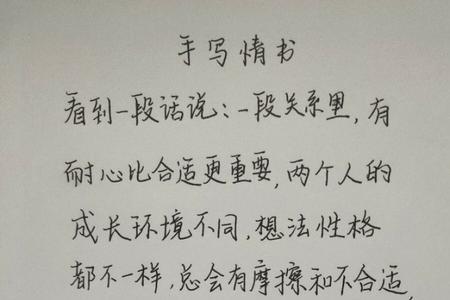 手写情书
看到一段话说：一段关系里，有
耐心比合适更重要，两个人的
成长环境不同，想法性格
都不一样，总会有摩擦和不合适，